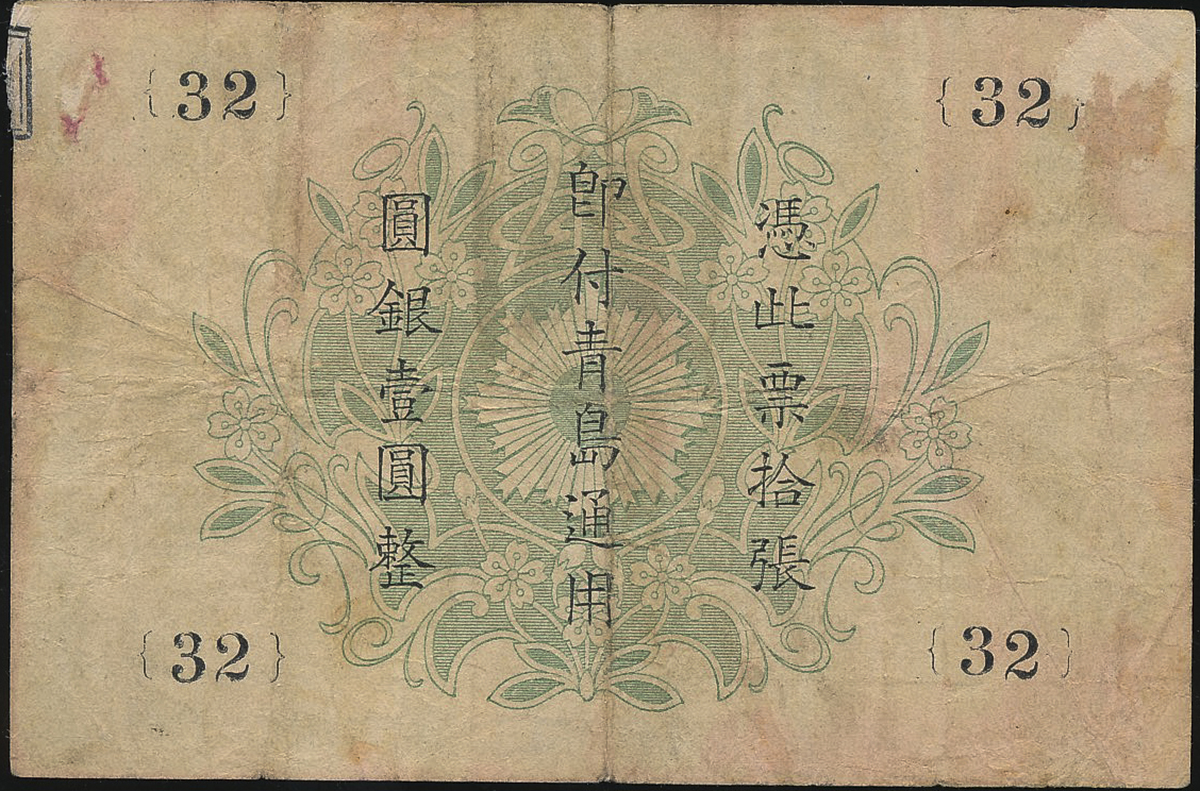 {32} {32}
憑此票拾張
卽付青島通用
圓銀壹圓整
{32} {32}